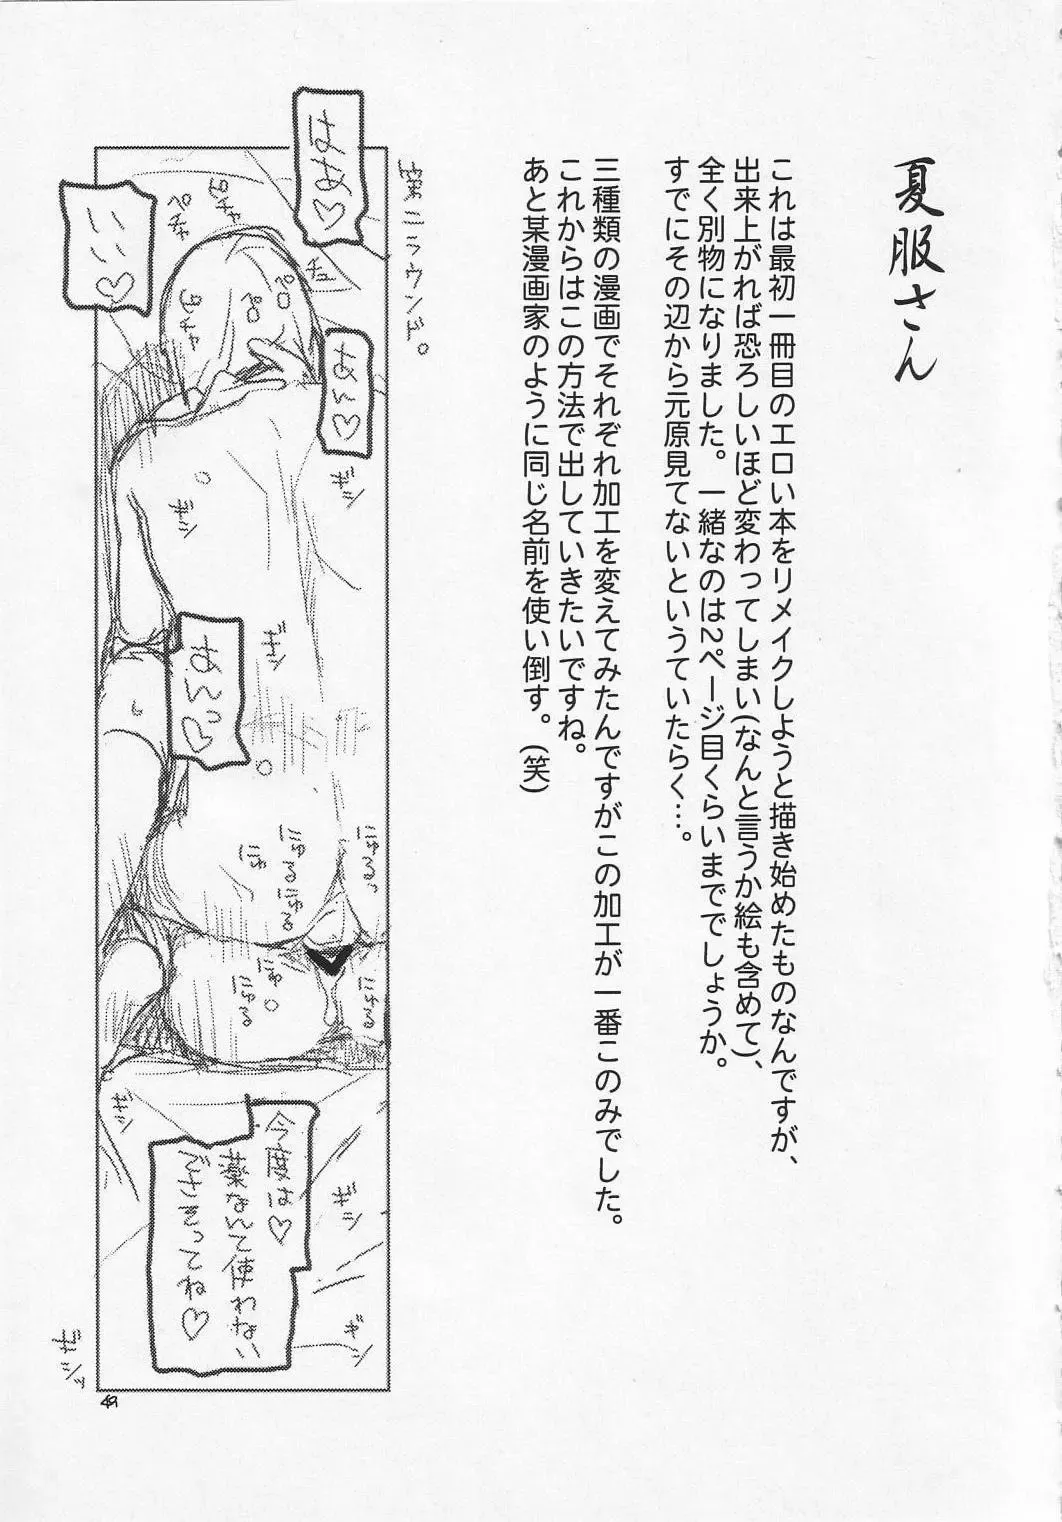 夏服さん
これは最初一冊目のエロい本をリメイクしようと描き始めたものなんですが、
出来上がれば恐ろしいほど変わってしまい(なんと言うか絵も含めて)、
全く別物になりました。一緒なのは2ページ目くらいまででしょうか。
すでにその辺から元原見てないというていたらく…。
三種類の漫画でそれぞれ加工を変えてみたんですがこの加工が一番このみでした。
これからはこの方法で出していきたいですね。
あと某漫画家のように同じ名前を使い倒す。(笑)
第二ラウンド。
はあ♡
いい♡
ピチャ
ペチャ
チュ
ペロ
ペロ
ピチャ
あん♡
ギシ
ギシ
ギシ
あんっ♡
にゅる
にゅるっ
にゅ
にゅる
にゅ
にゅる
にゅる
今度は♡
薬なんて使わない
でさそってね♡
ギシ
ギシ
ギシ
49